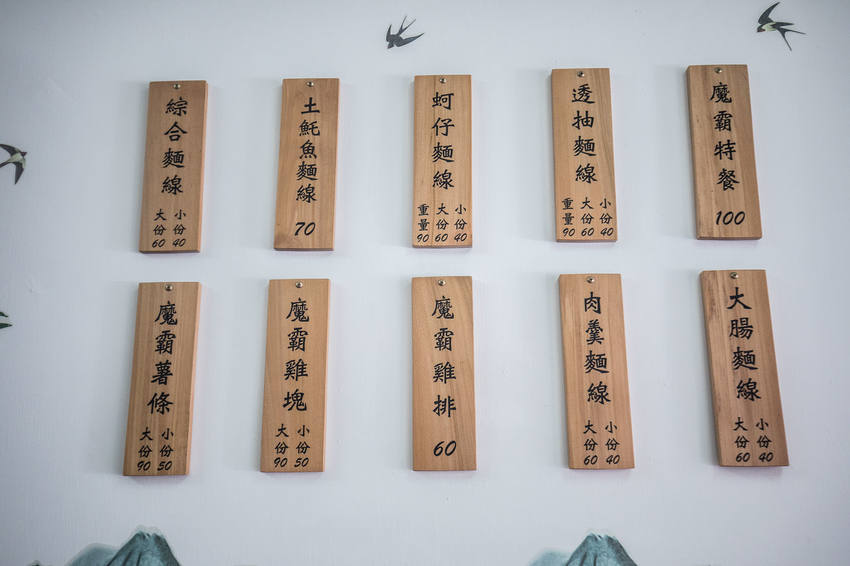 魔霸特餐
100
透抽麵線
小份 40
大份 60
重量 90
蚵仔麵線
小份 40
大份 60
重量 90
土魠魚麵線
70
綜合麵線
小份 40
大份 60
大腸麵線
小份 40
大份 60
肉羹麵線
小份 40
大份 60
魔霸雞排
60
魔霸雞塊
小份 50
大份 90
魔霸薯條
小份 50
大份 90